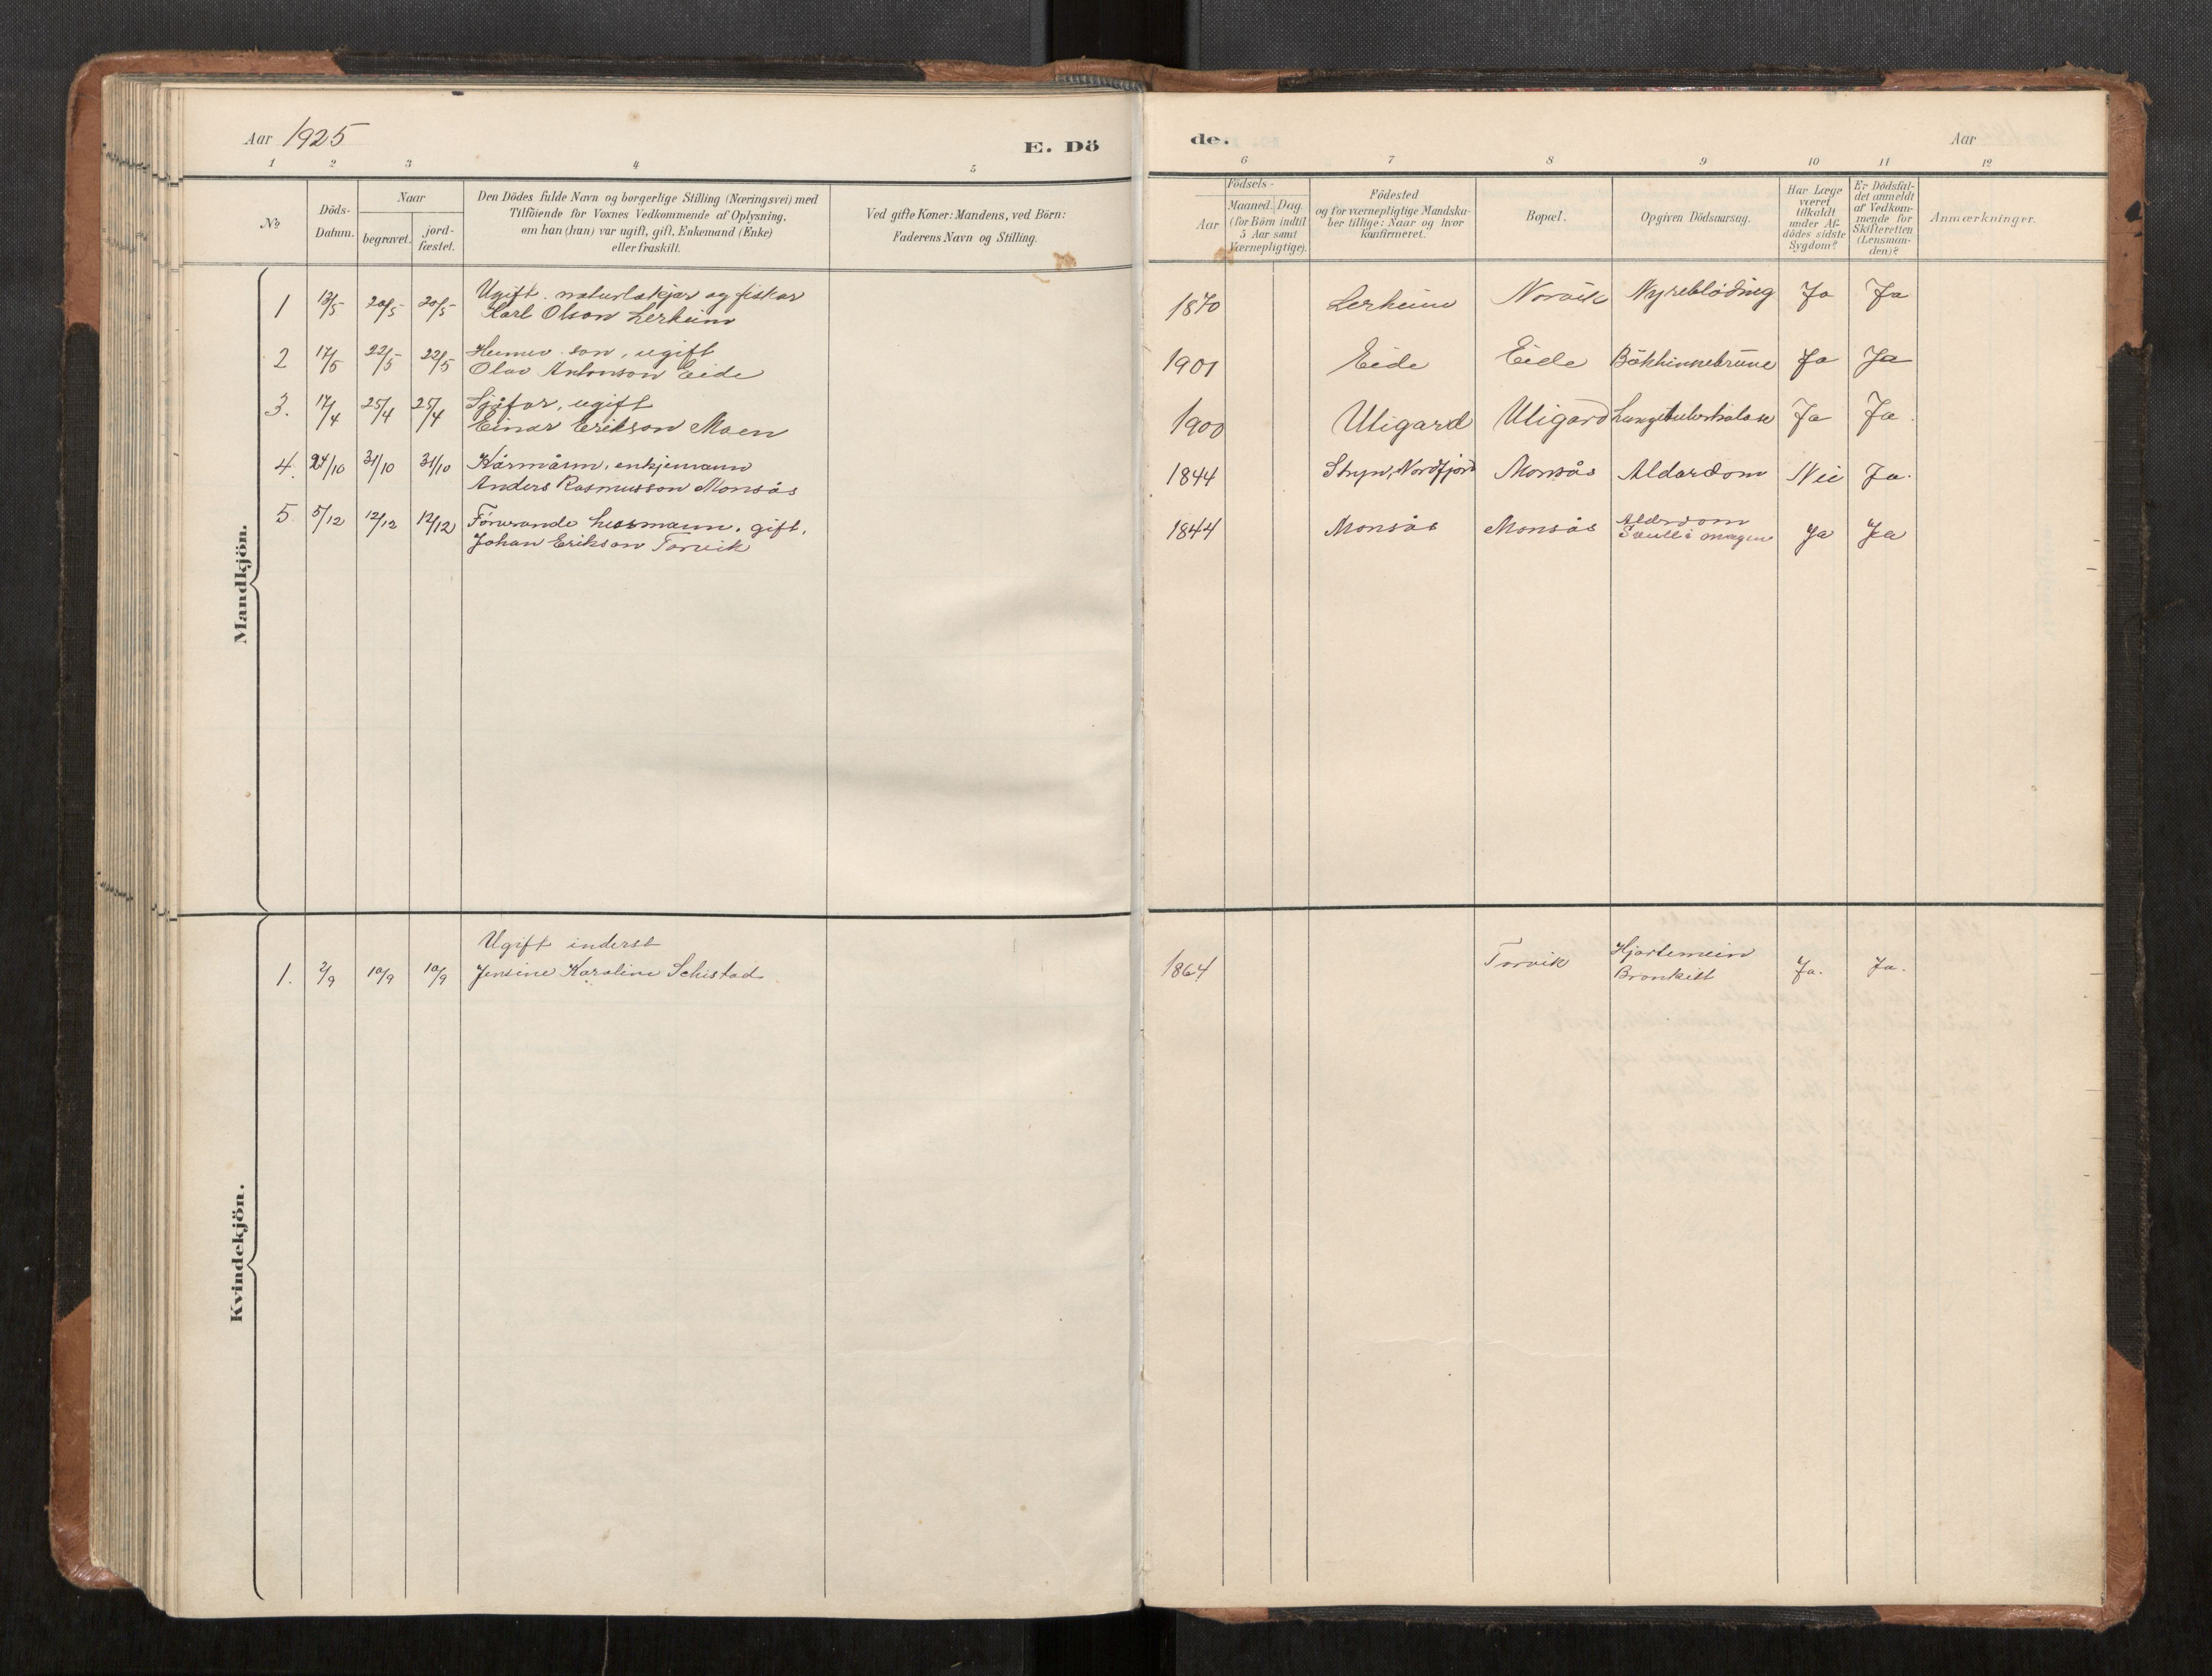 Aar 1925
E. Dö
de.
Aar
1 2 3 4 5 6 7 8 9 10 11 12
No
Döds-Datum.
Naar
begravet.
jord-fæstet.
Den Dödes fulde Navn og borgerlige Stilling (Næringsvei) med
Tilföiende for Voxnes Vedkommende af Oplysning,
om han (hun) var ugift, gift, Enkemand (Enke)
eller fraskilt.
Ved gifte Koner: Mandens, ved Börn:
Faderens Navn og Stilling.
Födsels-
Aar
Maaned. Dag.
(for Börn indtil
5 Aar samt
Værnepligtige).
Födested
og for værnepligtige Mandska-
ber tillige: Naar og hvor
konfirmeret.
Bopæl.
Opgiven Dödsaarsag.
Har Læge
været
tilkaldt
under Af-
dödes sidste
Sygdom?
Er Dödsfal-
det anmeldt
af Vedkom-
mende for
Skifteretten
(Lensman-
den)?
Anmærkninger.
Mandkjön.
Ugift. naturlækjar og fiskar
1 13/5 20/5 20/5 Karl Olson Lerheim 1870 Lerheim Norvik Nyreblöding Ja Ja
son, ugift
2 17/5 22/5 22/5 Olav Antonson Eide 1901 Eide Eide Bukhinnebrune Ja Ja
Sjöfar, ugift
3. 17/4 25/4 25/4 Einar Erikson Moen 1900 Utigard Utigard Ja Ja.
Kårmann, enkjemann
4. 24/10 31/10 31/10 Anders Rasmusson Monsås 1844 Stryn, Nordfjord Monsås Alderdom Nei Ja.
Förverande husmann, gift, Alderdom
5 5/12 12/12 12/12 Johan Erikson Torvik 1844 Monsås Monsås Svull i magen Ja Ja
Kvindekjön.
Ugift inderst Hjartemein
1. 2/9 10/9 10/9 Jensine Karoline Schistad 1864 Torvik Bronkitt Ja. Ja.